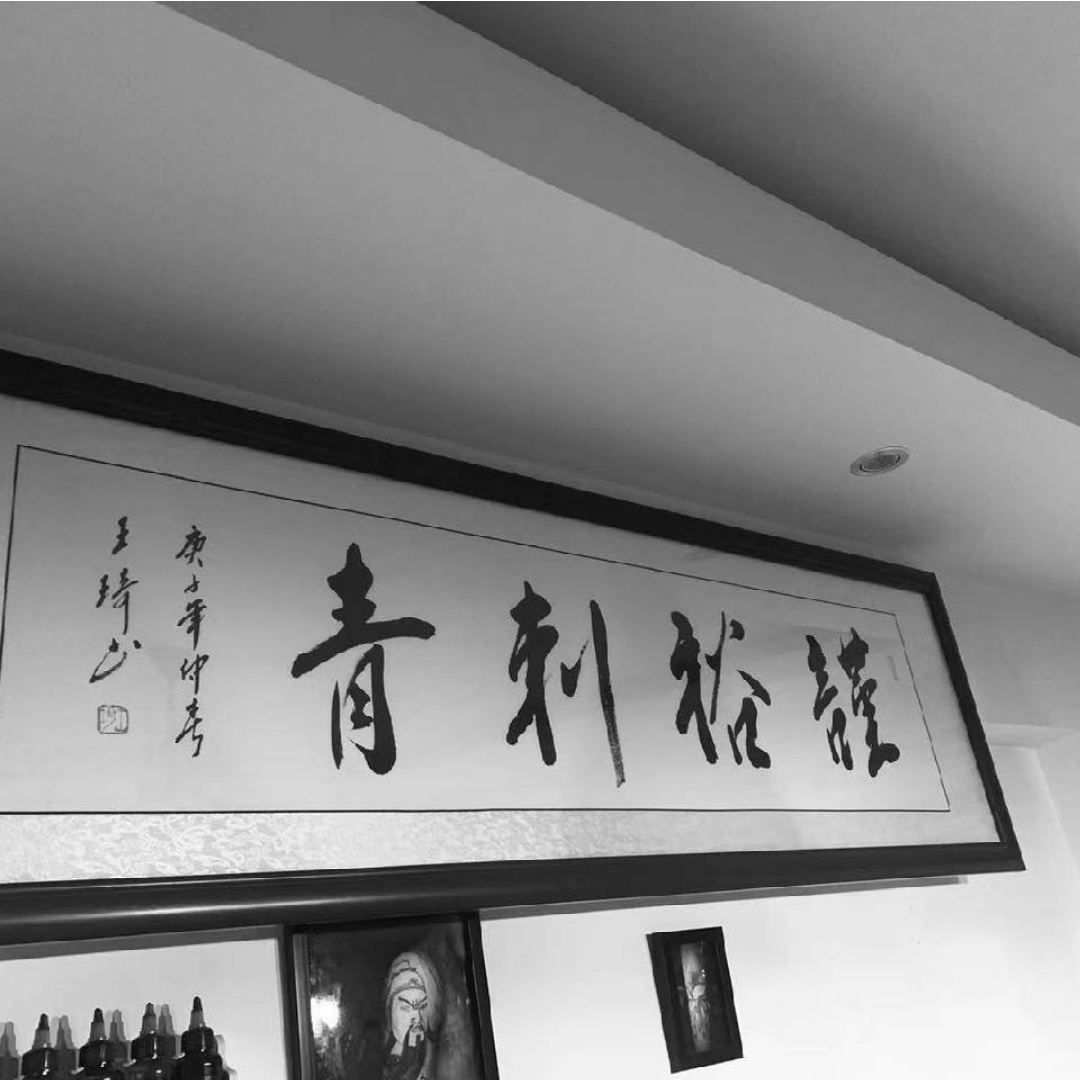 裕刺青
庚子年仲春
王琦